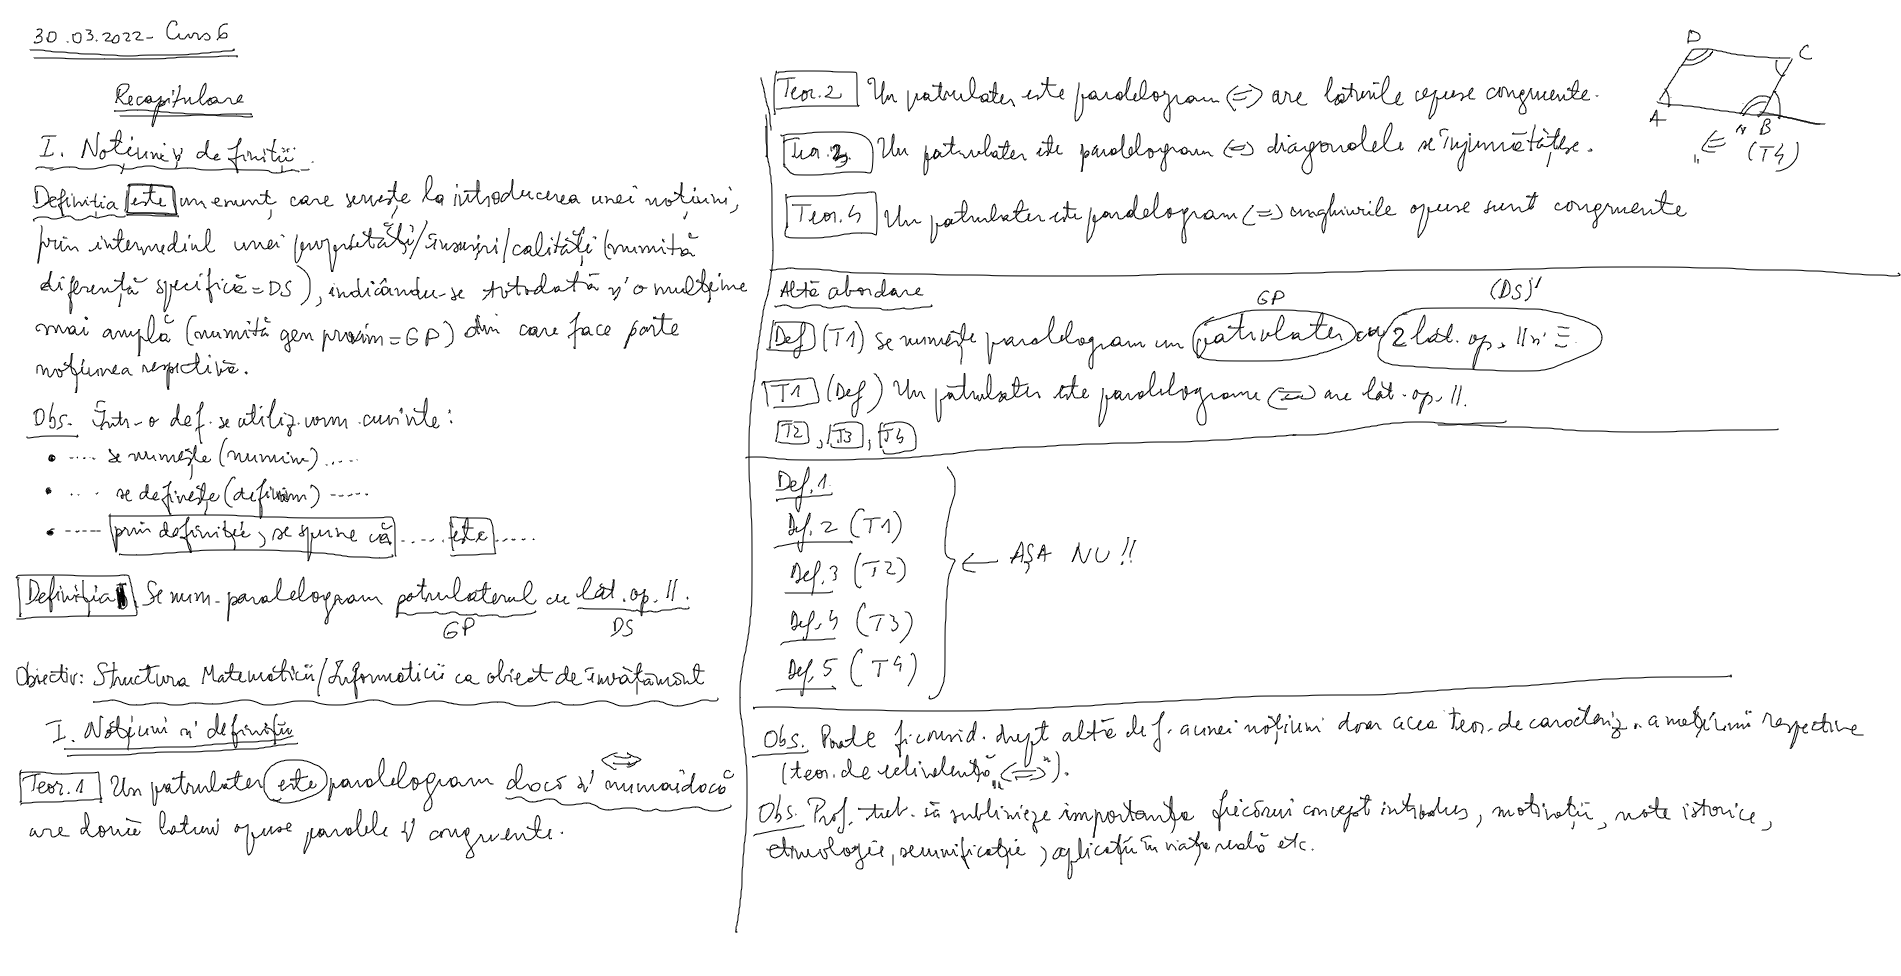 30.03.2022 - Curs 6
Recapitulare
I. Noțiuni și definiții
Definiția este un enunț care servește la introducerea unei noțiuni,
prin intermediul unei proprietăți/însușiri/calități (numită
diferență specifică = DS), indicându-se totodată și o mulțime
mai amplă (numită gen proxim = GP) din care face parte
noțiunea respectivă.
Obs. Într-o def. se utiliz. urm. cuvinte:
• .... se numește (numim) ....
• .... se definește (definim) .....
• ..... prin definiție, se spune că ..... este .....
Definiția Se num. paralelogram patrulaterul cu lat. op. ||.
GP DS
Obiectiv: Structura Matematicii/Informaticii ca obiect de învățământ
I. Noțiuni și definiții
Teor. 1 Un patrulater este paralelogram dacă și numai dacă
⇔
are două laturi opuse paralele și congruente.
Teor. 2 Un patrulater este paralelogram (⇔) are laturile opuse congruente.
Teor. 3 Un patrulater este paralelogram (⇔) diagonalele se înjumătățesc.
Teor. 4 Un patrulater este paralelogram (⇔) unghiurile opuse sunt congruente
D C
A M B
"⇐ (T4)
Altă abordare
GP (DS)'
Def (T1) Se numește paralelogram un patrulater cu 2 lat. op. || și ≡.
T1 (Def) Un patrulater este paralelogram (⇔) are lat. op. ||.
T2, T3, T4
Def. 1
Def. 2 (T1)
Def. 3 (T2)
Def. 4 (T3)
Def. 5 (T4)
← AȘA NU!!
Obs. Poate fi consid. drept altă def. a unei noțiuni doar acea teor. de caracteriz. a noțiunii respective
(teor. de echivalență „⇔").
Obs. Prof. treb. să sublinieze importanța fiecărui concept introdus, motivații, note istorice,
etimologie, semnificație, aplicații în viața reală etc.